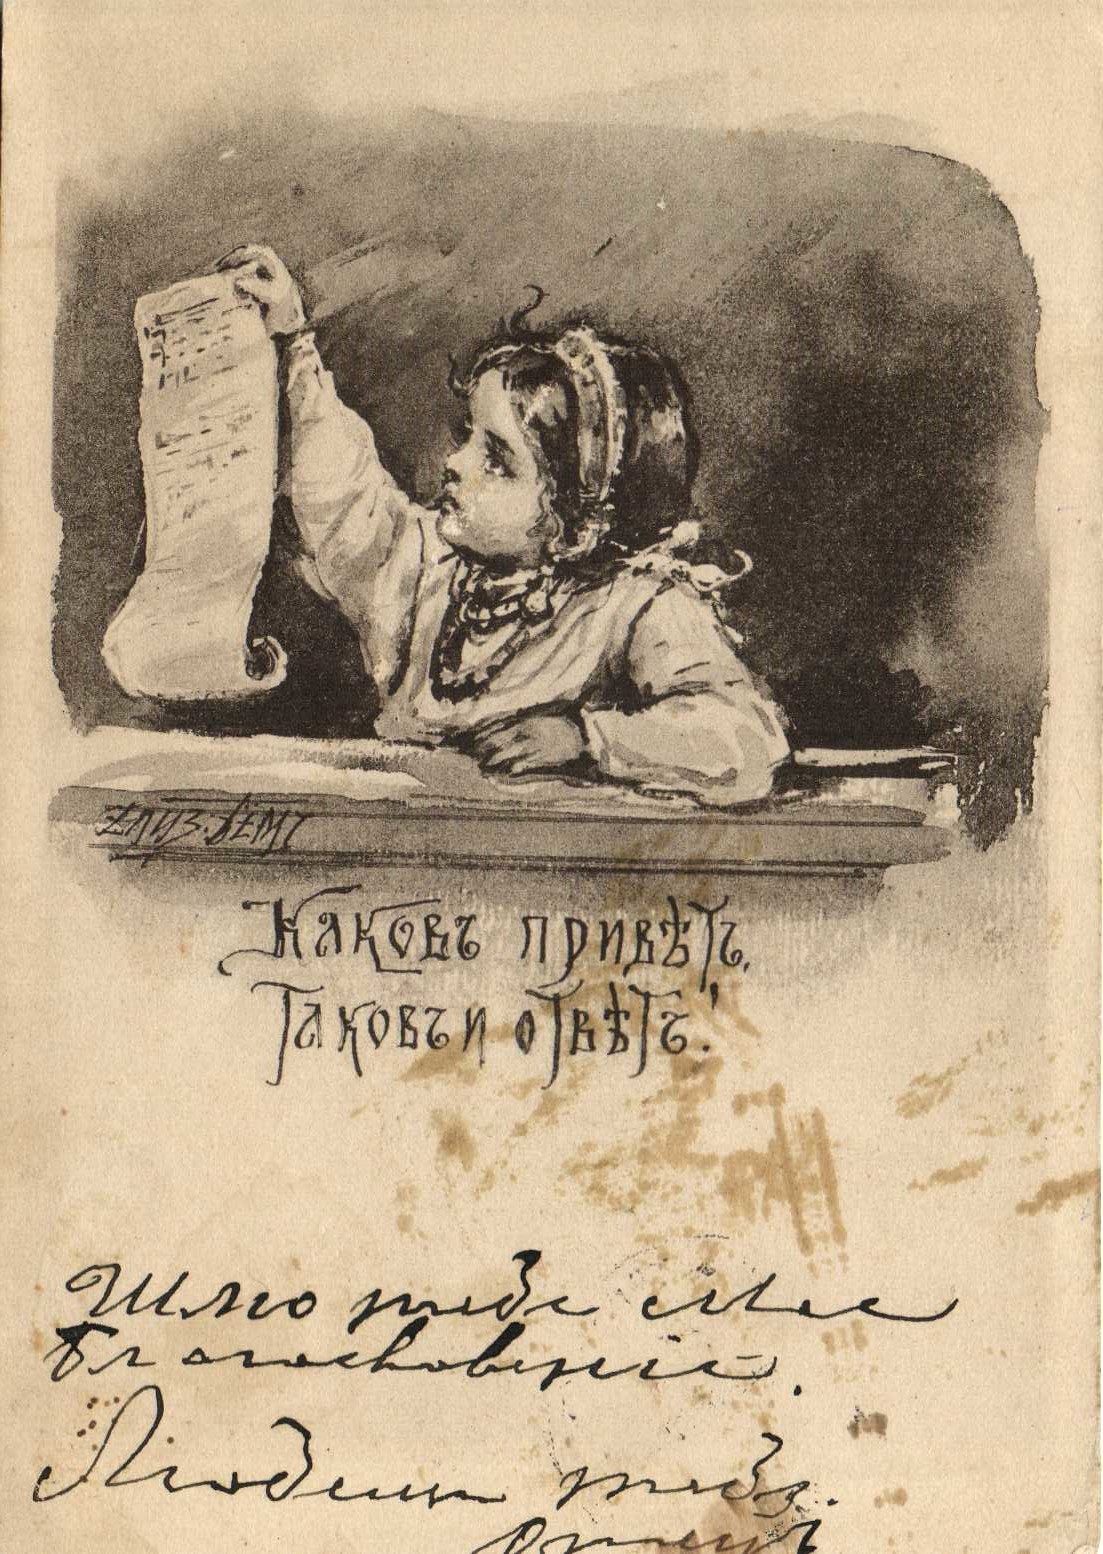 ЕЛИЗ. БЕМЪ
Каковъ привѣтъ,
Таковъ и отвѣтъ!
Шлю тебе мое
благословение.
тебя.
отецъ